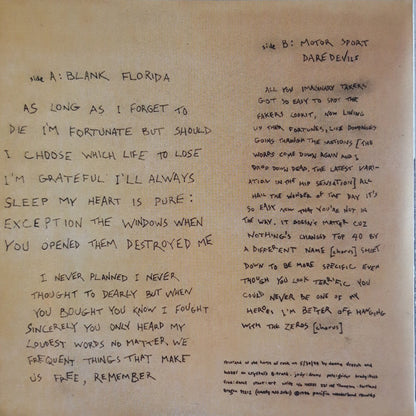 side A: BLANK FLORIDA
AS LONG AS I FORGET TO
DIE I'M FORTUNATE BUT SHOULD
I CHOOSE WHICH LIFE TO LOSE
I'M GRATEFUL I'LL ALWAYS
SLEEP MY HEART IS PURE:
EXCEPTION THE WINDOWS WHEN
YOU OPENED THEM DESTROYED ME
I NEVER PLANNED I NEVER
THOUGHT TO DEARLY BUT WHEN
YOU BOUGHT YOU KNOW I FOUGHT
SINCERELY YOU ONLY HEARD MY
LOUDEST WORDS NO MATTER WE
FREQUENT THINGS THAT MAKE
US FREE, REMEMBER
side B: MOTOR SPORT
DAREDEVILS
ALL YOU IMAGINARY TAKERS
GOT SO EASY TO SPOT THE
FAKERS LOOKIT, NOW LINING
UP THEIR FORTUNES, LIKE DOMINOES
GOING THROUGH THE MOTIONS [THE
WORDS COME DOWN AGAIN AND I
DROP DOWN DEAD, THE LATEST VARI-
ATION IN THE HIP SENSATION] ALL
HAIL THE WONDER OF THE DAY IT'S
SO EASY NOW THAT YOU'RE NOT IN
THE WAY. IT DOESN'T MATTER CUZ
NOTHING'S CHANGED TOP 40 BY
A DIFFERENT NAME [chorus] SHIFT
DOWN TO BE MORE SPECIFIC EVEN
THOUGH YOU LOOK TERRIFIC YOU
COULD NEVER BE ONE OF MY
HEROES I'M BETTER OFF HANGING
WITH THE ZEROS [chorus]
recorded at the house of rock on